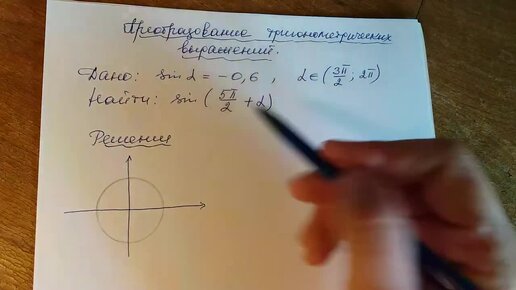 Преобразование тригонометрических
выражений.
Дано: sin α = −0,6 , α ∈ (3π/2; 2π)
Найти: sin (5π/2 + α)
Решения